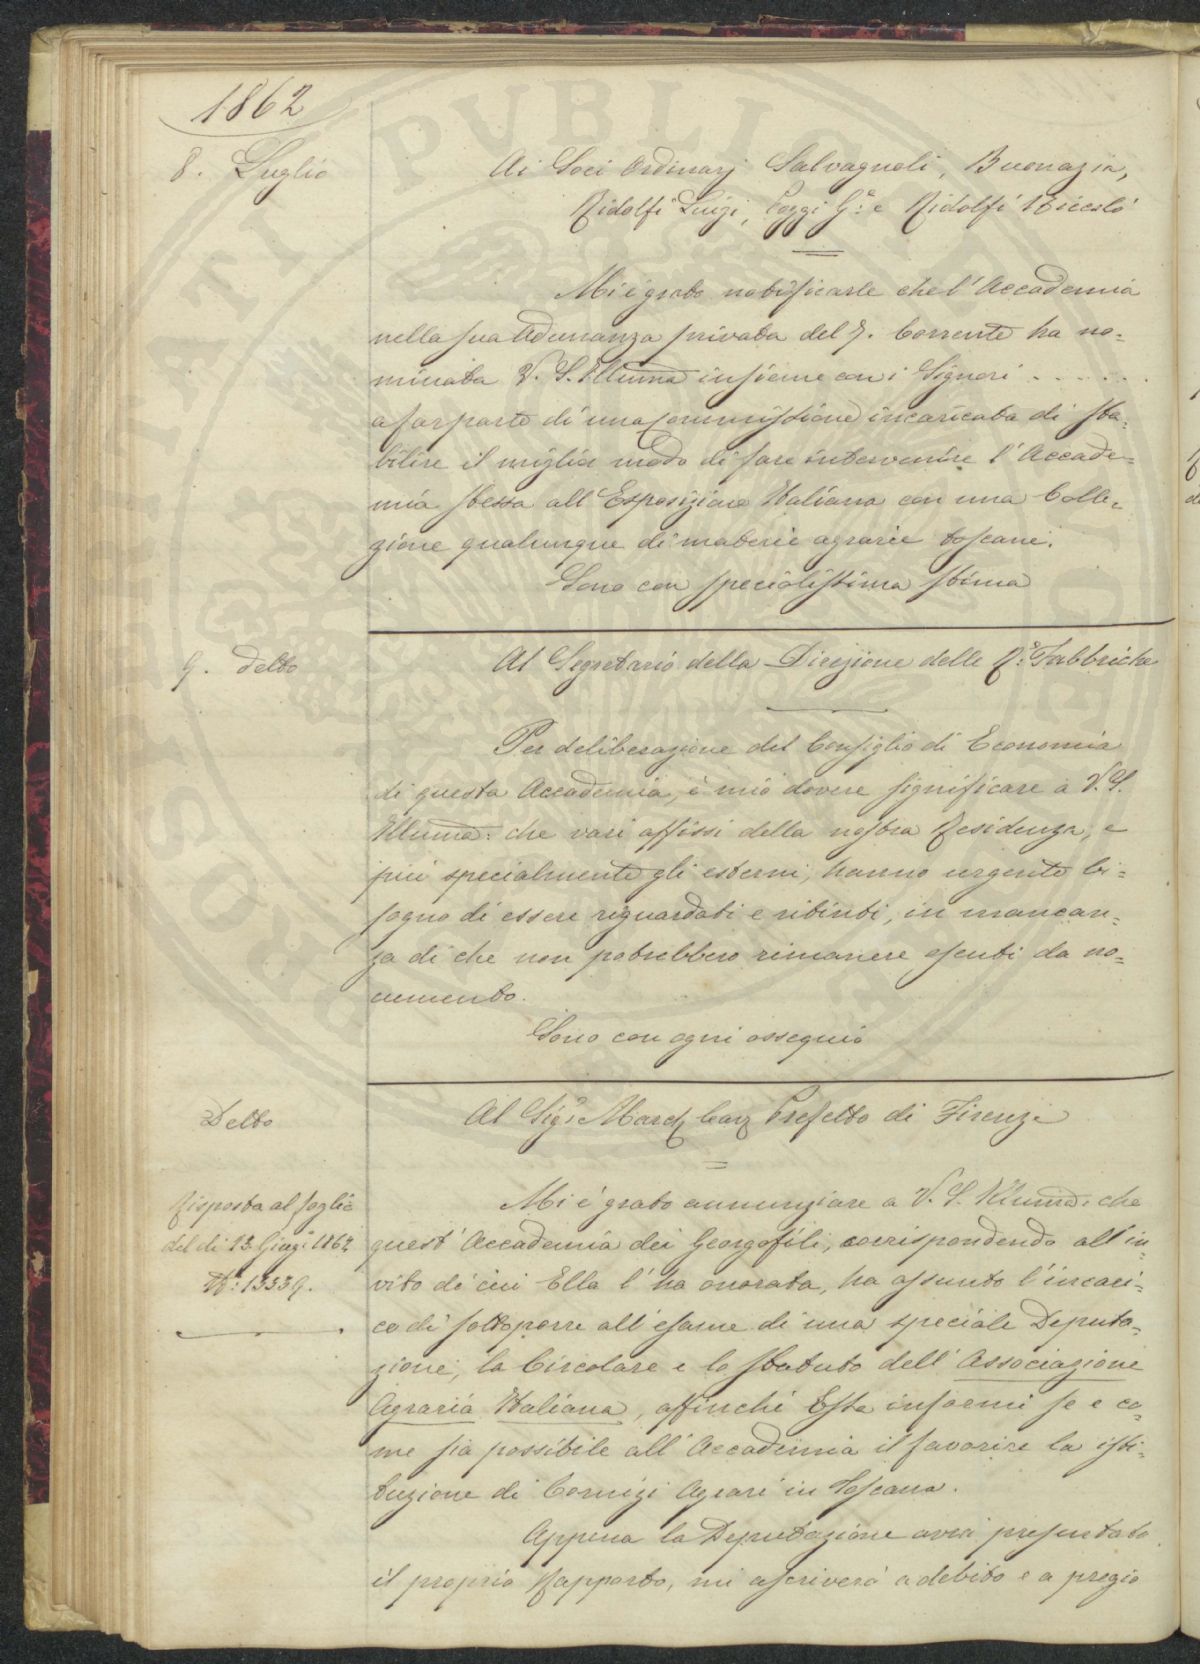 1862
8. Luglio
Ai Soci Ordinarj Salvagnoli, Buonazia,
Ridolfi Luigi, Poggi G.e e Ridolfi Niccolò
Mi è grato notificarle che l'Accademia
nella sua Adunanza privata del 7. Corrente ha no=
minata V. S. Illuma insieme con i Signori . . . . . .
a far parte di una Commissione incaricata di sta=
bilire il miglior modo di fare intervenire l'Accade=
mia stessa all'Esposizione Italiana con una Colle=
zione qualunque di materie agrarie toscane.
Sono con specialissima stima
9. detto
Al Segretario della Direzione delle R.e Fabbriche
Per deliberazione del Consiglio di Economia
di questa Accademia, è mio dovere significare a V. S.
Illuma: che vari affissi della nostra Residenza, e
più specialmente gli esterni, hanno urgente bi=
sogno di essere riguardati e ritinti, in mancan=
za di che non potrebbero rimanere esenti da no=
cumento.
Sono con ogni ossequio
Detto
Al Sig.r March Cav Prefetto di Firenze
Risposta al foglio
del dì 13. Giug.o 1862
N.o 13339.
Mi è grato annunziare a V. S. Illuma: che
quest'Accademia dei Georgofili, corrispondendo all'in=
vito di cui Ella l'ha onorata, ha assunto l'incari=
co di sottoporre all'esame di una speciale Deputa=
zione, la Circolare e lo Statuto dell'Associazione
Agraria Italiana, affinchè Essa informi se e co=
me sia possibile all'Accademia il favorire la isti=
tuzione di Comizi Agrari in Toscana.
Appena la Deputazione avrà presentato
il proprio Rapporto, mi ascriverò a debito e a pregio